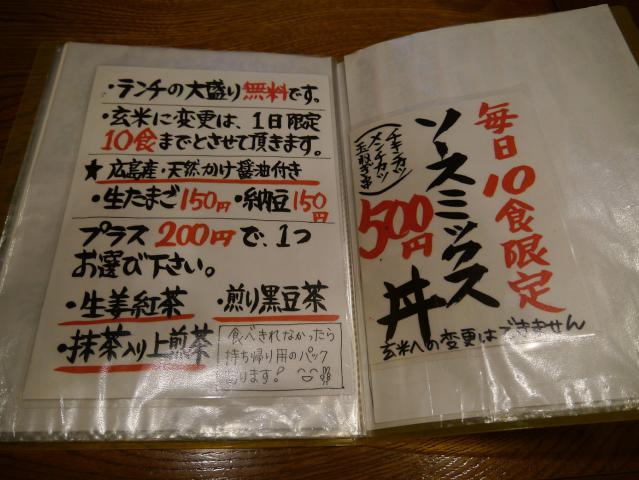 ・ランチの大盛り無料です。
・玄米に変更は、1日限定
10食までとさせて頂きます。
★広島産・天然かけ醤油付き
・生たまご150円・納豆150円
プラス200円で、1つ
お選び下さい。
・生姜紅茶 ・煎り黒豆茶
・抹茶入り上煎茶
食べきれなかったら
持ち帰り用のパック
あります!
毎日10食限定
ソースミックス丼
(チキンカツ
メンチカツ
玉ねぎ)
500円
玄米への変更はできません